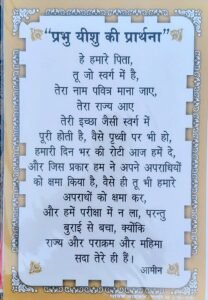 “प्रभु यीशु की प्रार्थना”
हे हमारे पिता,
तू जो स्वर्ग में है,
तेरा नाम पवित्र माना जाए,
तेरा राज्य आए
तेरी इच्छा जैसी स्वर्ग में
पूरी होती है, वैसे पृथ्वी पर भी हो,
हमारी दिन भर की रोटी आज हमें दे,
और जिस प्रकार हम ने अपने अपराधियों
को क्षमा किया है, वैसे ही तू भी हमारे
अपराधों को क्षमा कर,
और हमें परीक्षा में न ला, परन्तु
बुराई से बचा, क्योंकि
राज्य और पराक्रम और महिमा
सदा तेरे ही हैं।
आमीन